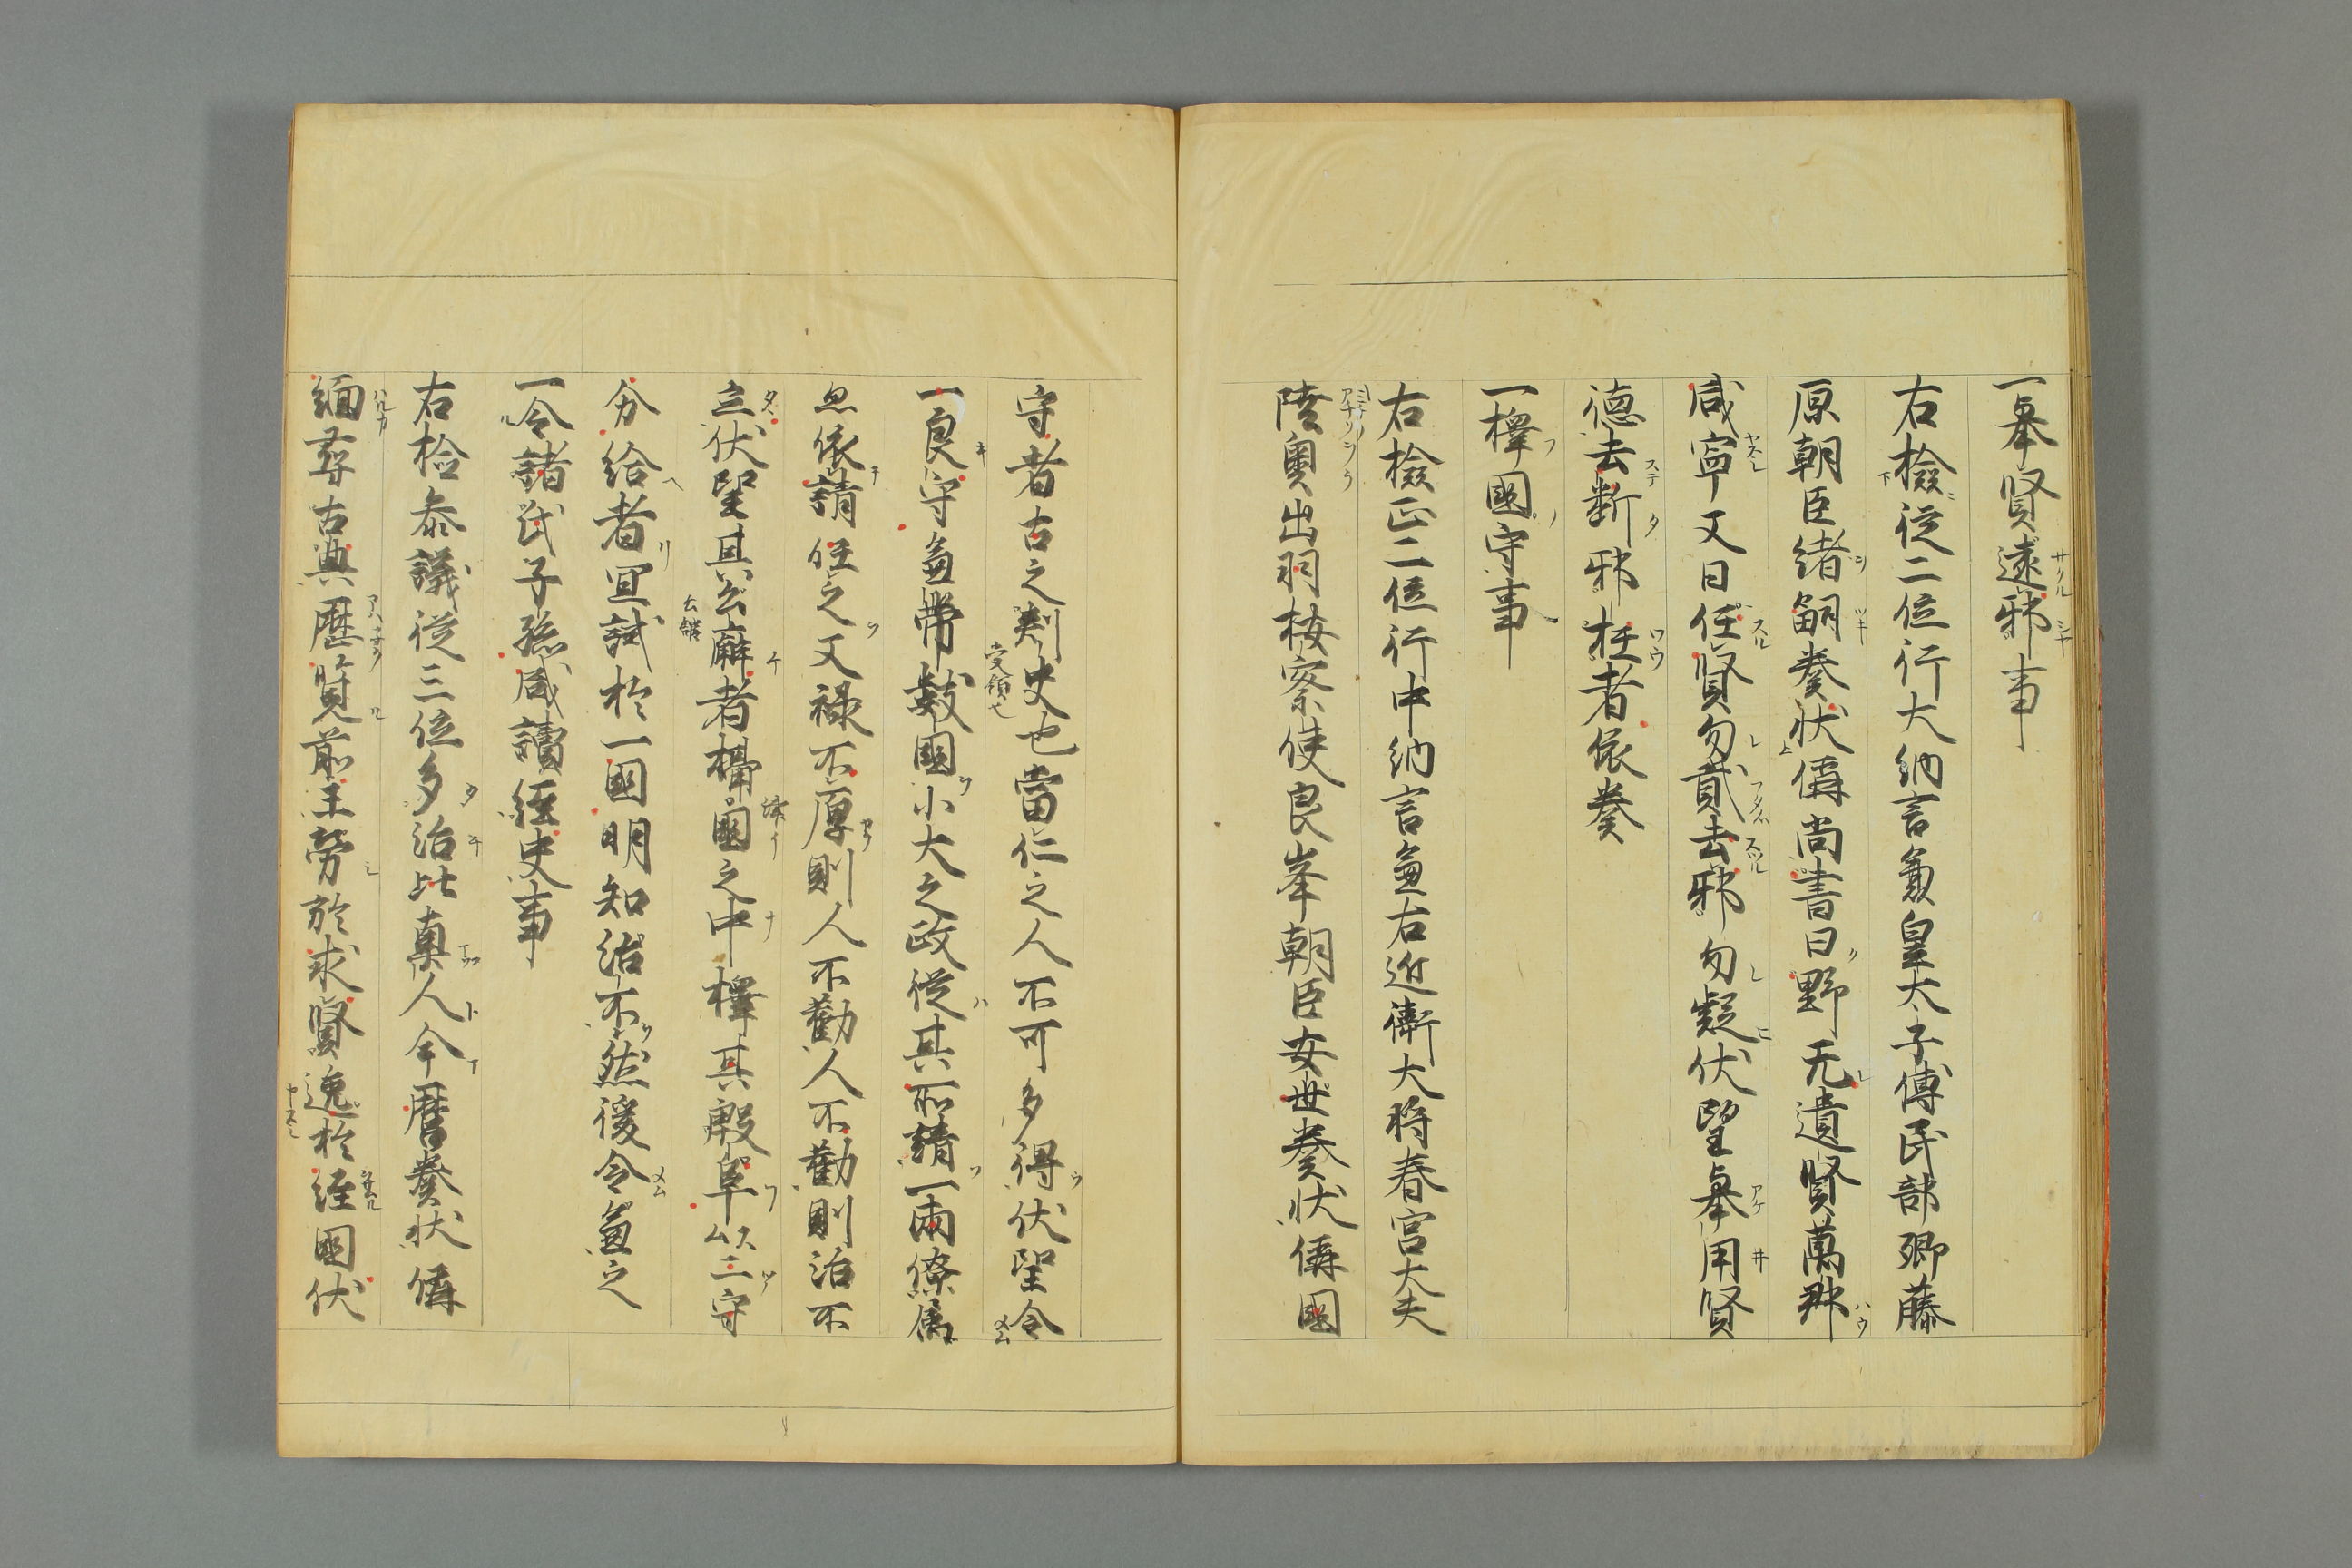 一舉賢遠邪事
右撿從二位行大納言兼皇太子傅民部卿藤
原朝臣緒嗣奏状偁尚書曰野无遺賢萬邦
咸寧又曰任賢勿貳去邪勿疑伏望舉用賢
德去斷邪枉者依奏
一擇國守事
右撿正三位行中納言兼右近衛大将春宮大夫
陸奥出羽桉察使良峯朝臣安世奏状偁國
守者古之刺史也當仁之人不可多得伏望令
受領也
一良守兼帶數國小大之政從其所請一兩僚属
亦依請任之又禄不厚則人不勸人不勸則治不
立伏望其公廨者欟國之中擇其殷阜以二守
分給者冝試於一國明知治不然後令兼之
一令諸氏子孫咸讀經史事
右撿叅議從三位多治比真人今麿奏状偁
緬尋古典歴覧前王勞於求賢逸於經國伏